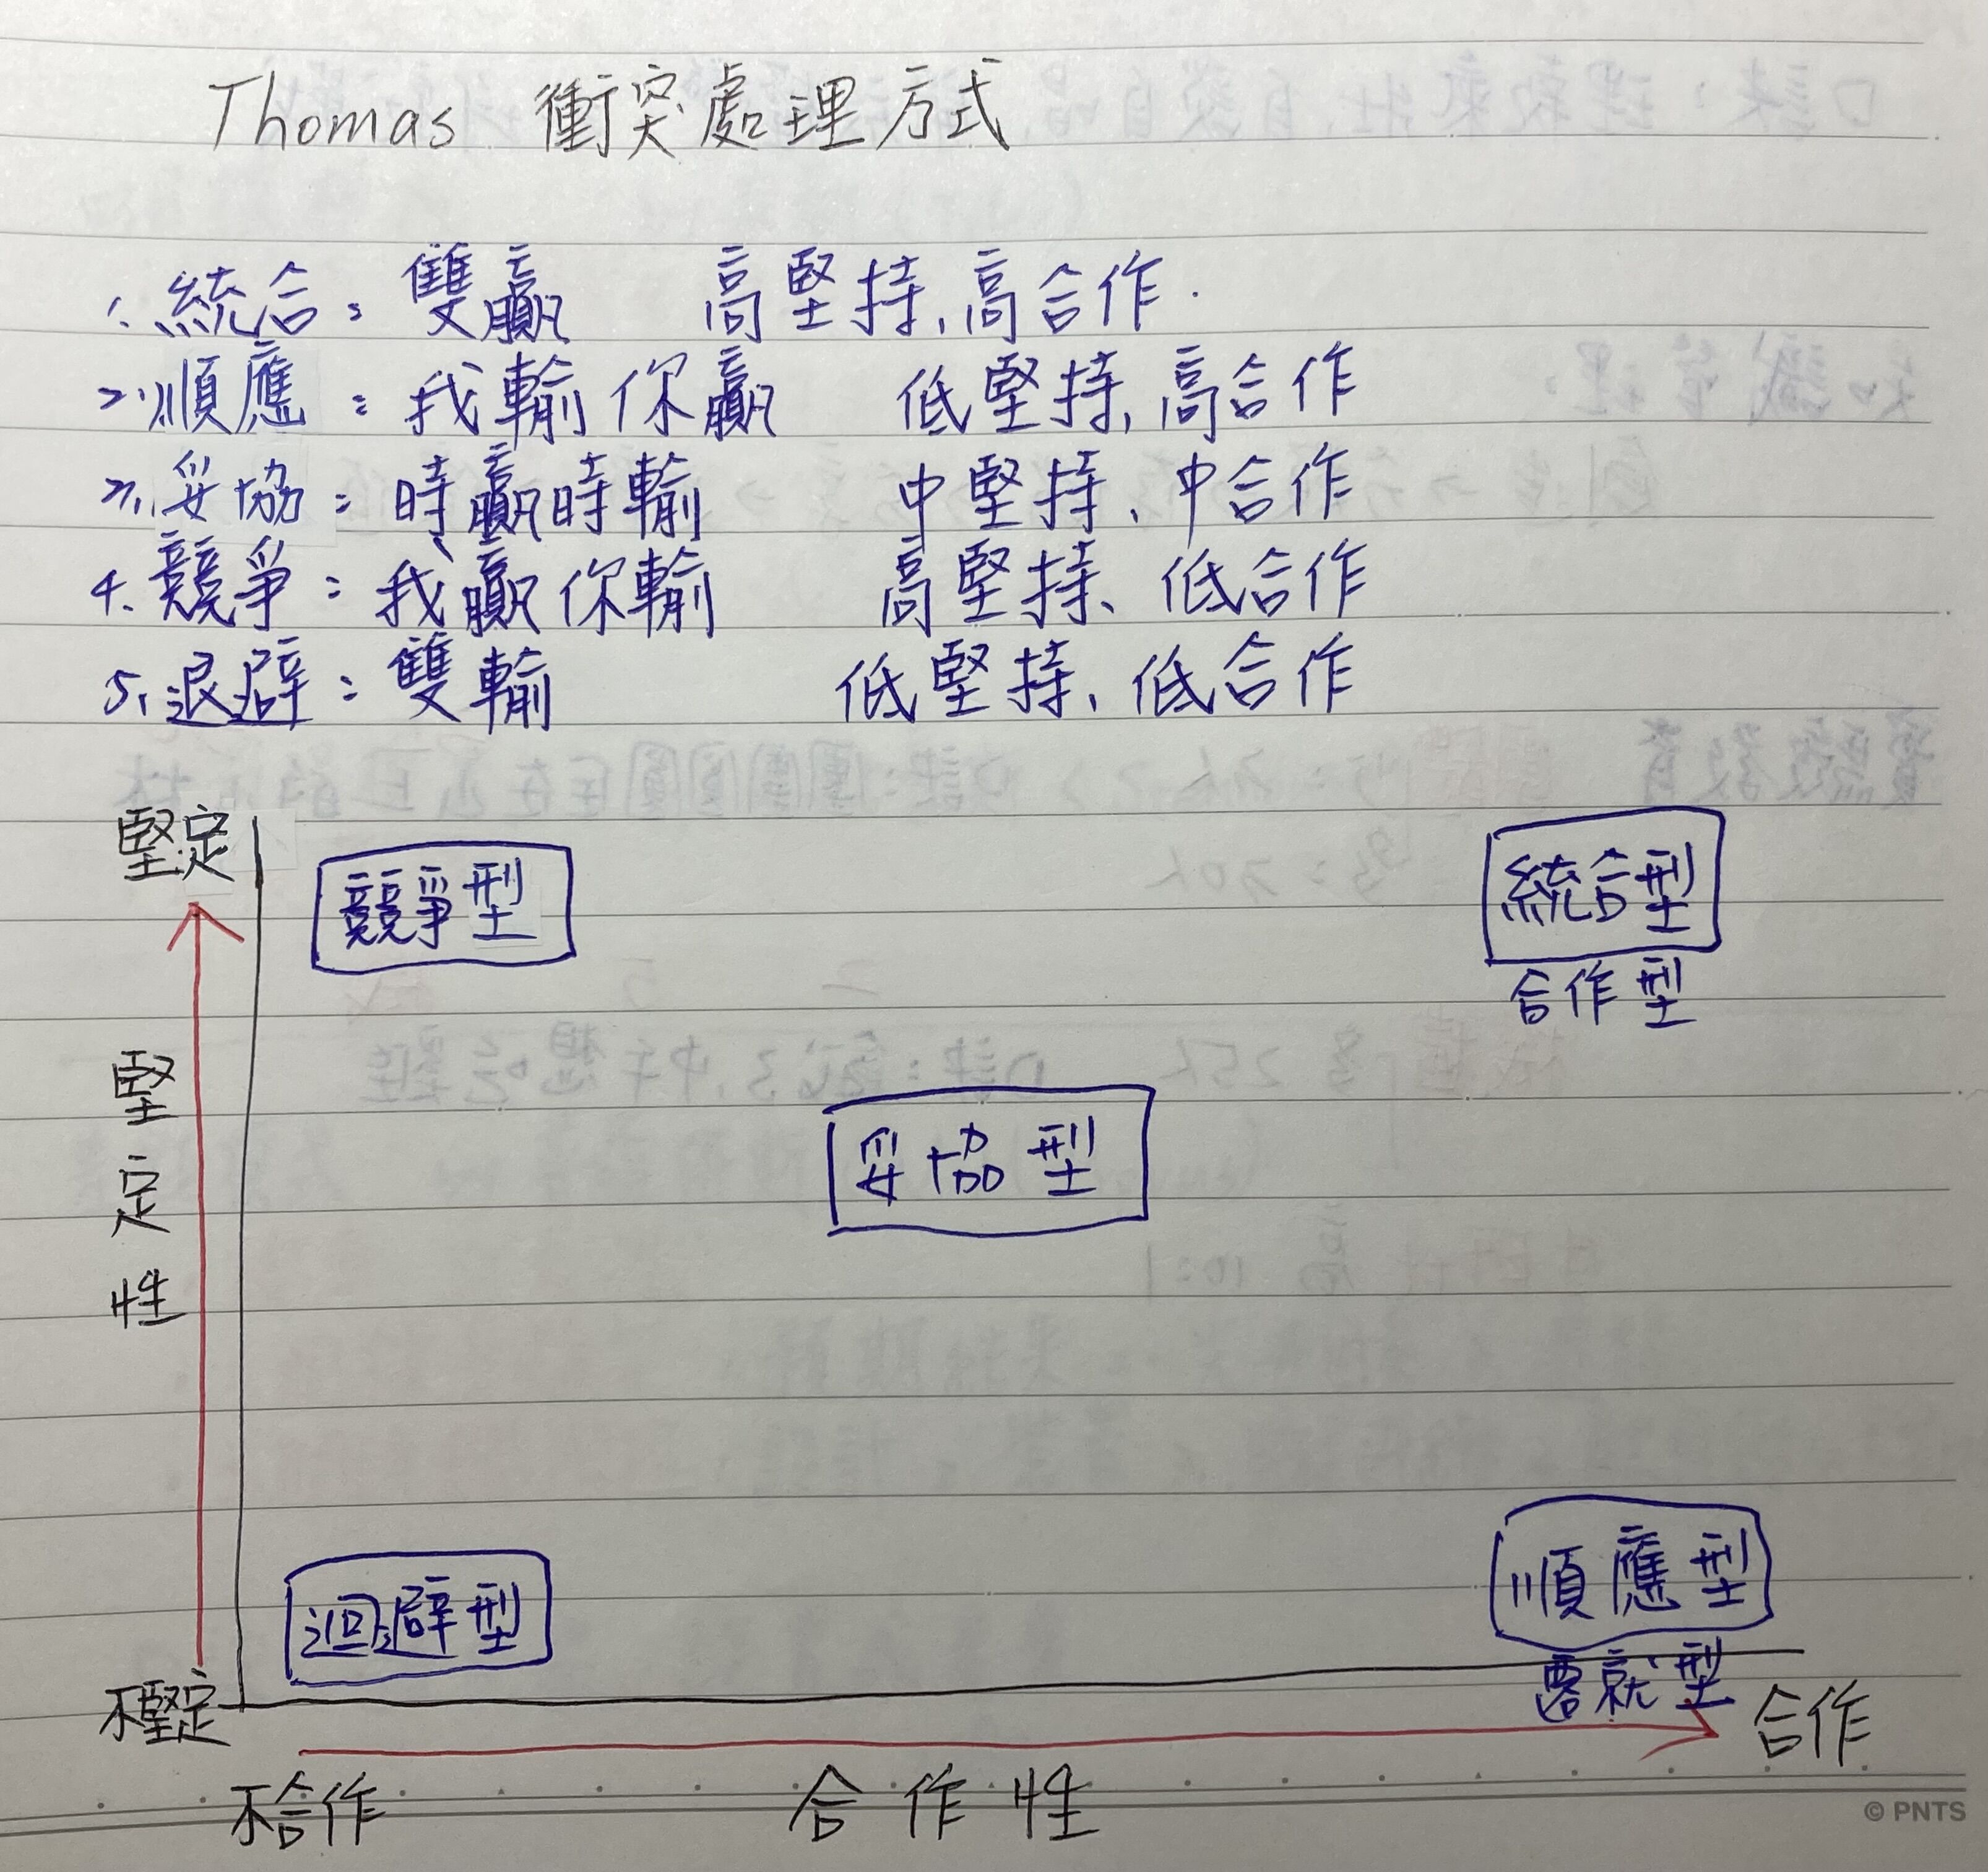 Thomas 衝突處理方式
1. 統合: 雙贏 高堅持、高合作.
2. 順應: 我輸你贏 低堅持、高合作
3. 妥協: 時贏時輸 中堅持、中合作
4. 競爭: 我贏你輸 高堅持、低合作
5. 退避: 雙輸 低堅持、低合作
堅定
競爭型
統合型
合作型
堅定性
妥協型
迴避型
順應型
不堅定
合作
不合作
合作性
© PNTS